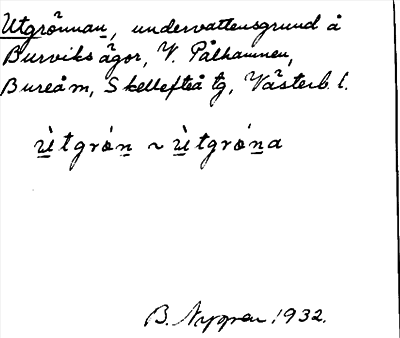 Utgrönnan, undervattensgrund å
Burviks ägor, V. Pålhamnen,
Bureå m, Skellefteå tg, Västerb. l.
ù̲tgrón̲ ~ ù̲tgrón̲a
B. Nyppen 1932.